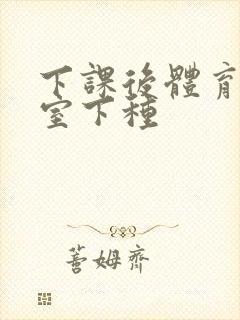 下課後體育
室下種
蓍姆齊